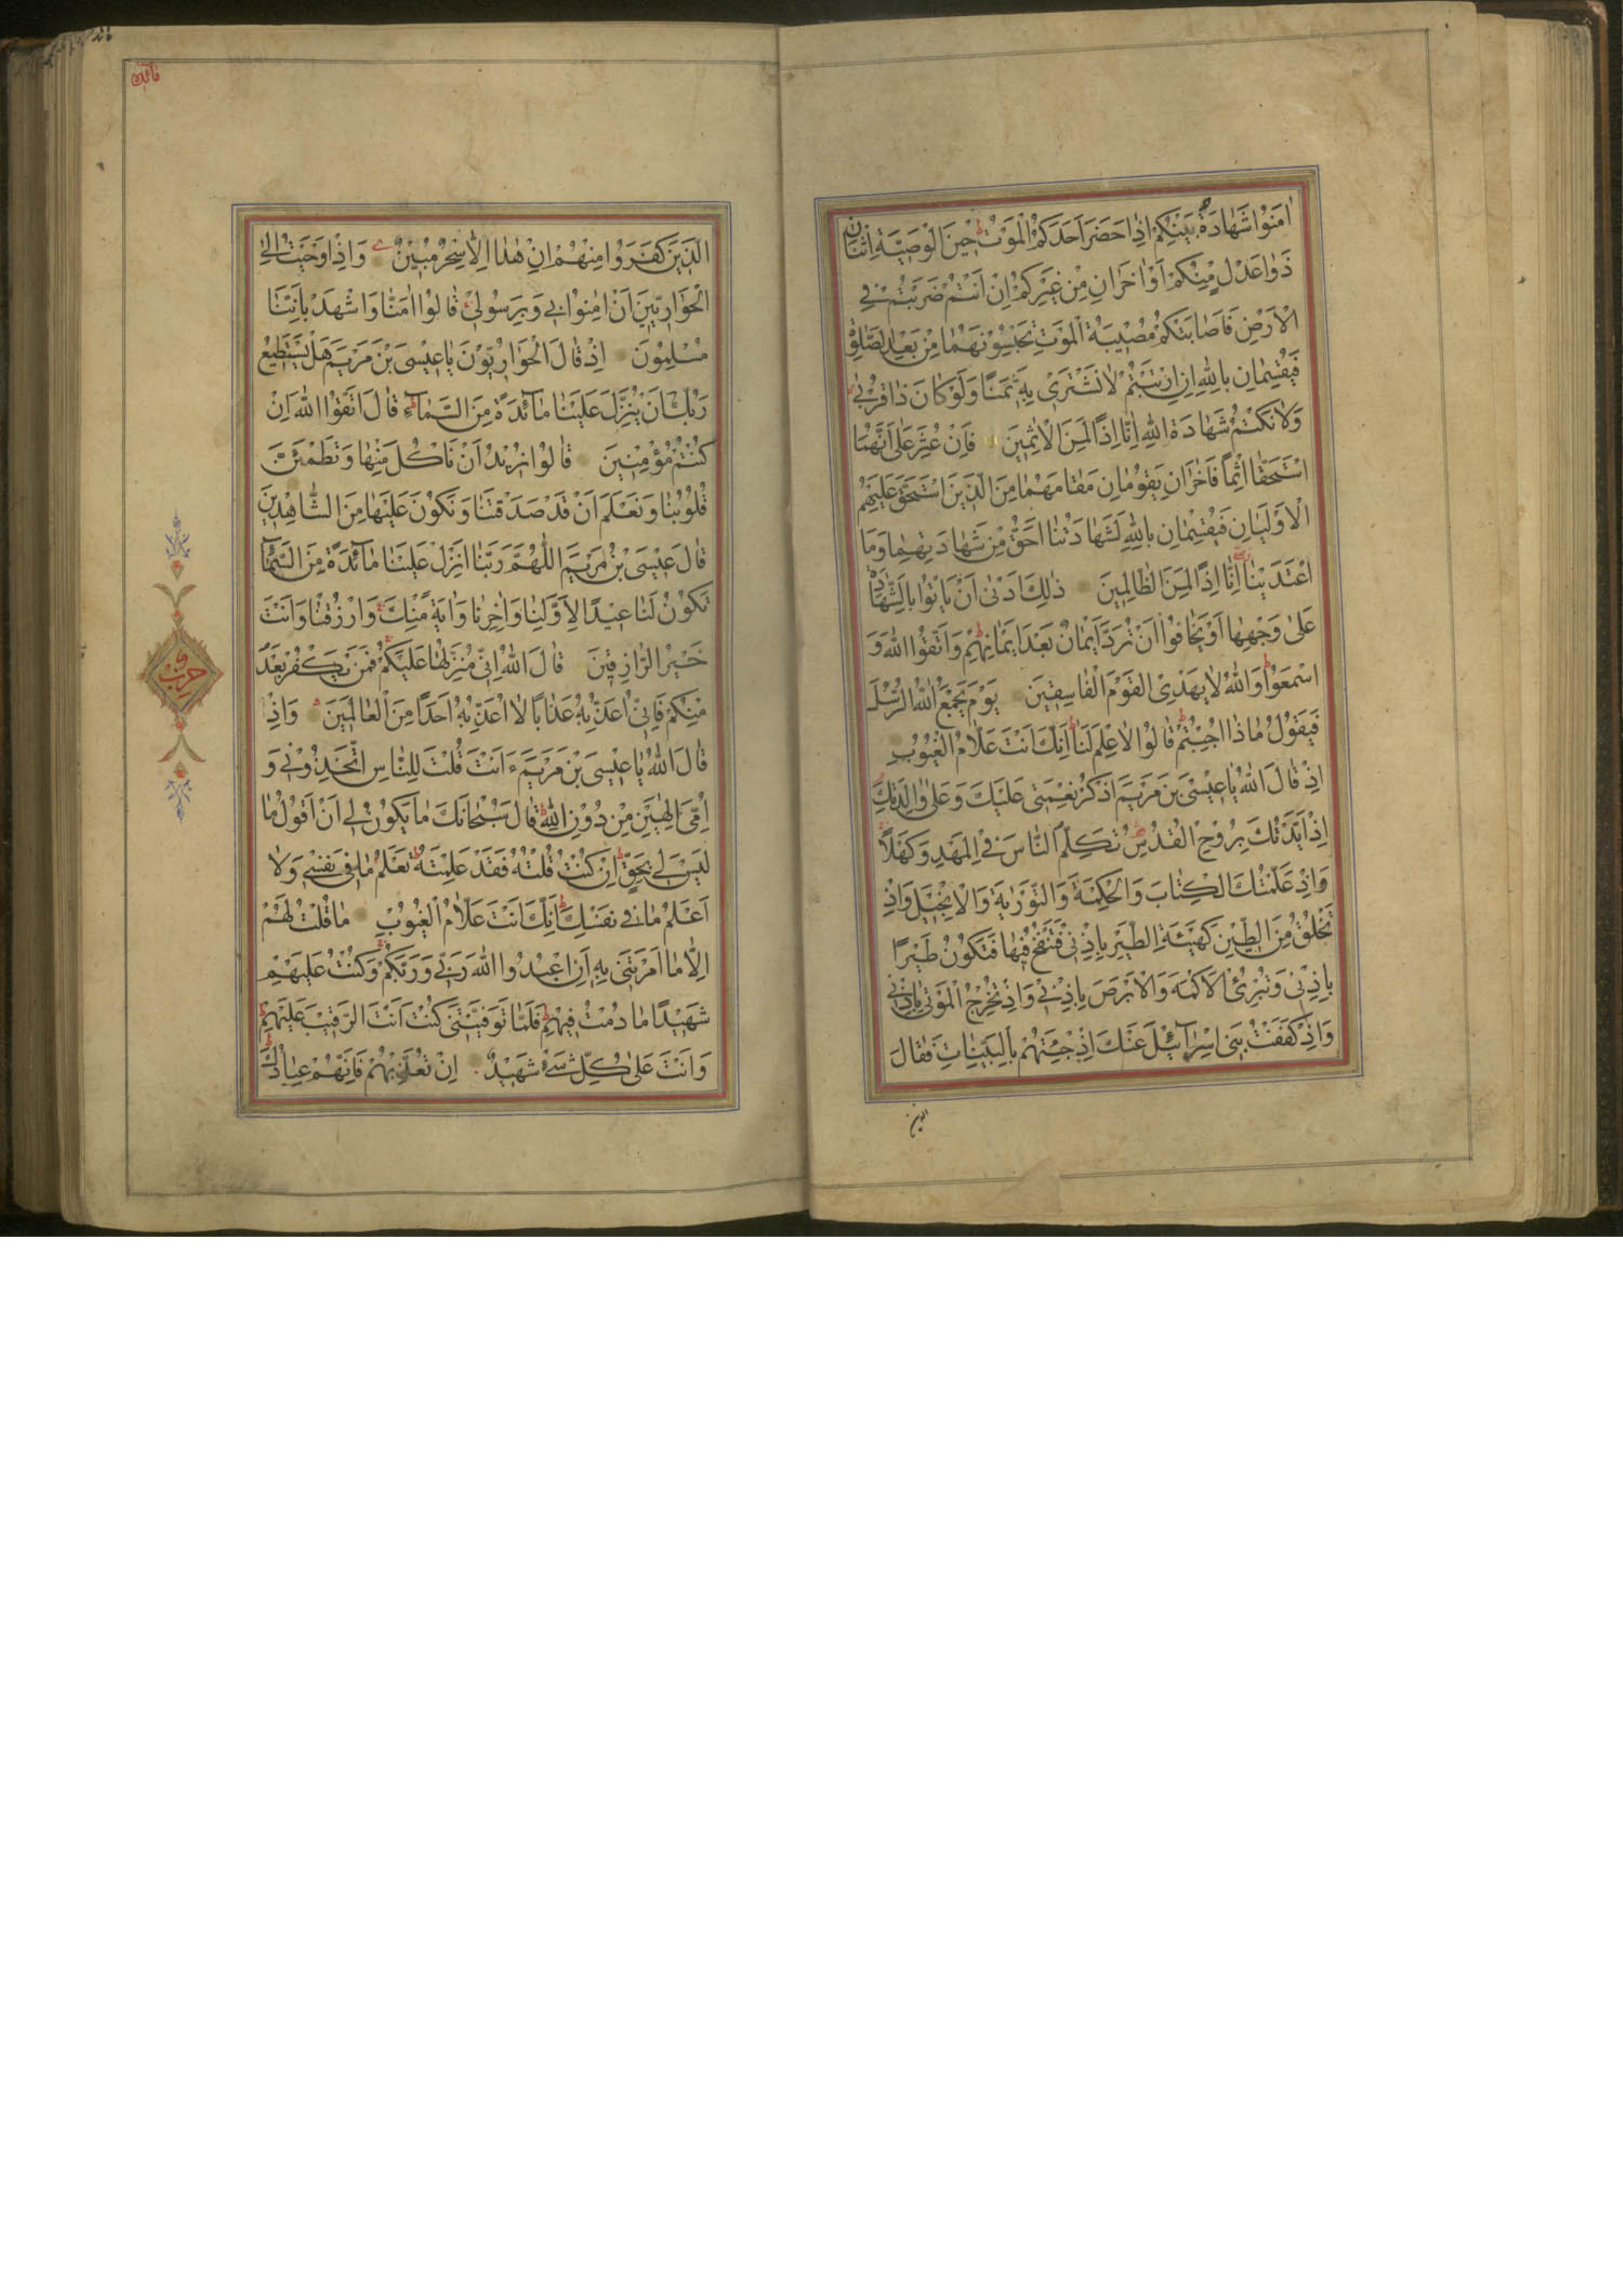 اٰمَنُوْا شَهٰادَةُ بَيْنِكُمْ اِذٰا حَضَرَ اَحَدَكُمُ الْمَوْتُ حِيْنَ الْوَصِيَّةِ اثْنٰانِ
ذَوٰا عَدْلٍ مِنْكُمْ اَوْ اٰخَرٰانِ مِنْ غَيْرِكُمْ اِنْ اَنْتُمْ ضَرَبْتُمْ فِي
الْاَرْضِ فَاَصٰابَتْكُمْ مُصِيْبَةُ الْمَوْتِ تَحْبِسُوْنَهُمٰا مِنْ بَعْدِ الصَّلٰوةِ
فَيُقْسِمٰانِ بِاللهِ اِنِ ارْتَبْتُمْ لٰا نَشْتَرِيْ بِهٖ ثَمَنًا وَلَوْ كٰانَ ذٰا قُرْبٰى
وَلٰا نَكْتُمُ شَهٰادَةَ اللهِ اِنّٰا اِذًا لَمِنَ الْاٰثِمِيْنَ فَاِنْ عُثِرَ عَلٰى اَنَّهُمَا
اسْتَحَقّٰا اِثْمًا فَاٰخَرٰانِ يَقُوْمٰانِ مَقٰامَهُمٰا مِنَ الَّذِيْنَ اسْتَحَقَّ عَلَيْهِمُ
الْاَوْلَيٰانِ فَيُقْسِمٰانِ بِاللهِ لَشَهٰادَتُنٰا اَحَقُّ مِنْ شَهٰادَتِهِمٰا وَمَا
اعْتَدَيْنٰا اِنّٰا اِذًا لَمِنَ الظّٰالِمِيْنَ ذٰلِكَ اَدْنٰى اَنْ يَاْتُوْا بِالشَّهٰادَةِ
عَلٰى وَجْهِهٰا اَوْ يَخٰافُوْا اَنْ تُرَدَّ اَيْمٰانٌ بَعْدَ اَيْمٰانِهِمْ وَاتَّقُوا اللهَ وَ
اسْمَعُوْا وَاللهُ لٰا يَهْدِى الْقَوْمَ الْفٰاسِقِيْنَ يَوْمَ يَجْمَعُ اللهُ الرُّسُلَ
فَيَقُوْلُ مٰاذٰا اُجِبْتُمْ قٰالُوْا لٰا عِلْمَ لَنٰا اِنَّكَ اَنْتَ عَلّٰامُ الْغُيُوْبِ
اِذْ قٰالَ اللهُ يٰا عِيْسَى بْنَ مَرْيَمَ اذْكُرْ نِعْمَتِيْ عَلَيْكَ وَعَلٰى وٰالِدَتِكَ
اِذْ اَيَّدْتُكَ بِرُوْحِ الْقُدُسِ تُكَلِّمُ النّٰاسَ فِى الْمَهْدِ وَكَهْلًا
وَاِذْ عَلَّمْتُكَ الْكِتٰابَ وَالْحِكْمَةَ وَالتَّوْرٰيةَ وَالْاِنْجِيْلَ وَاِذْ
تَخْلُقُ مِنَ الطِّيْنِ كَهَيْئَةِ الطَّيْرِ بِاِذْنِيْ فَتَنْفُخُ فِيْهٰا فَتَكُوْنُ طَيْرًا
بِاِذْنِيْ وَتُبْرِئُ الْاَكْمَهَ وَالْاَبْرَصَ بِاِذْنِيْ وَاِذْ تُخْرِجُ الْمَوْتٰى بِاِذْنِيْ
وَاِذْ كَفَفْتُ بَنِيْ اِسْرٰآئِيْلَ عَنْكَ اِذْ جِئْتَهُمْ بِالْبَيِّنٰاتِ فَقٰالَ
الذين
مائدة
الَّذِيْنَ كَفَرُوْا مِنْهُمْ اِنْ هٰذٰا اِلّٰا سِحْرٌ مُبِيْنٌ وَاِذْ اَوْحَيْتُ اِلَى
الْحَوٰارِيّٖنَ اَنْ اٰمِنُوْا بِيْ وَبِرَسُوْلِيْ قٰالُوْا اٰمَنّٰا وَاشْهَدْ بِاَنَّنٰا
مُسْلِمُوْنَ اِذْ قٰالَ الْحَوٰارِيُّوْنَ يٰا عِيْسَى بْنَ مَرْيَمَ هَلْ يَسْتَطِيْعُ
رَبُّكَ اَنْ يُنَزِّلَ عَلَيْنٰا مٰآئِدَةً مِنَ السَّمٰآءِ قٰالَ اتَّقُوا اللهَ اِنْ
كُنْتُمْ مُؤْمِنِيْنَ قٰالُوْا نُرِيْدُ اَنْ نَاْكُلَ مِنْهٰا وَتَطْمَئِنَّ
قُلُوْبُنٰا وَنَعْلَمَ اَنْ قَدْ صَدَقْتَنٰا وَنَكُوْنَ عَلَيْهٰا مِنَ الشّٰاهِدِيْنَ
قٰالَ عِيْسَى بْنُ مَرْيَمَ اللّٰهُمَّ رَبَّنٰا اَنْزِلْ عَلَيْنٰا مٰآئِدَةً مِنَ السَّمٰآءِ
تَكُوْنُ لَنٰا عِيْدًا لِاَوَّلِنٰا وَاٰخِرِنٰا وَاٰيَةً مِنْكَ وَارْزُقْنٰا وَاَنْتَ
خَيْرُ الرّٰازِقِيْنَ قٰالَ اللهُ اِنِّيْ مُنَزِّلُهٰا عَلَيْكُمْ فَمَنْ يَكْفُرْ بَعْدُ
مِنْكُمْ فَاِنِّيْ اُعَذِّبُهُ عَذٰابًا لٰا اُعَذِّبُهُ اَحَدًا مِنَ الْعٰالَمِيْنَ وَاِذْ
قٰالَ اللهُ يٰا عِيْسَى بْنَ مَرْيَمَ ءَاَنْتَ قُلْتَ لِلنّٰاسِ اتَّخِذُوْنِيْ وَ
اُمِّيَ اِلٰهَيْنِ مِنْ دُوْنِ اللهِ قٰالَ سُبْحٰانَكَ مٰا يَكُوْنُ لِيْ اَنْ اَقُوْلَ مٰا
لَيْسَ لِيْ بِحَقٍّ اِنْ كُنْتُ قُلْتُهُ فَقَدْ عَلِمْتَهُ تَعْلَمُ مٰا فِيْ نَفْسِيْ وَلٰا
اَعْلَمُ مٰا فِيْ نَفْسِكَ اِنَّكَ اَنْتَ عَلّٰامُ الْغُيُوْبِ مٰا قُلْتُ لَهُمْ
اِلّٰا مٰا اَمَرْتَنِيْ بِهٖ اَنِ اعْبُدُوا اللهَ رَبِّيْ وَرَبَّكُمْ وَكُنْتُ عَلَيْهِمْ
شَهِيْدًا مٰا دُمْتُ فِيْهِمْ فَلَمّٰا تَوَفَّيْتَنِيْ كُنْتَ اَنْتَ الرَّقِيْبَ عَلَيْهِمْ
وَاَنْتَ عَلٰى كُلِّ شَيْءٍ شَهِيْدٌ اِنْ تُعَذِّبْهُمْ فَاِنَّهُمْ عِبٰادُكَ
حزب